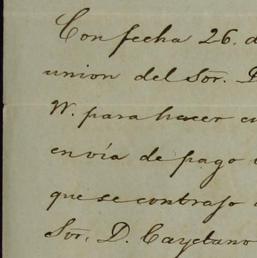 Con fecha 26. d
union del Sor. D
W. para hacer en
envía de pago
que se contrajo
Sor. D. Cayetano